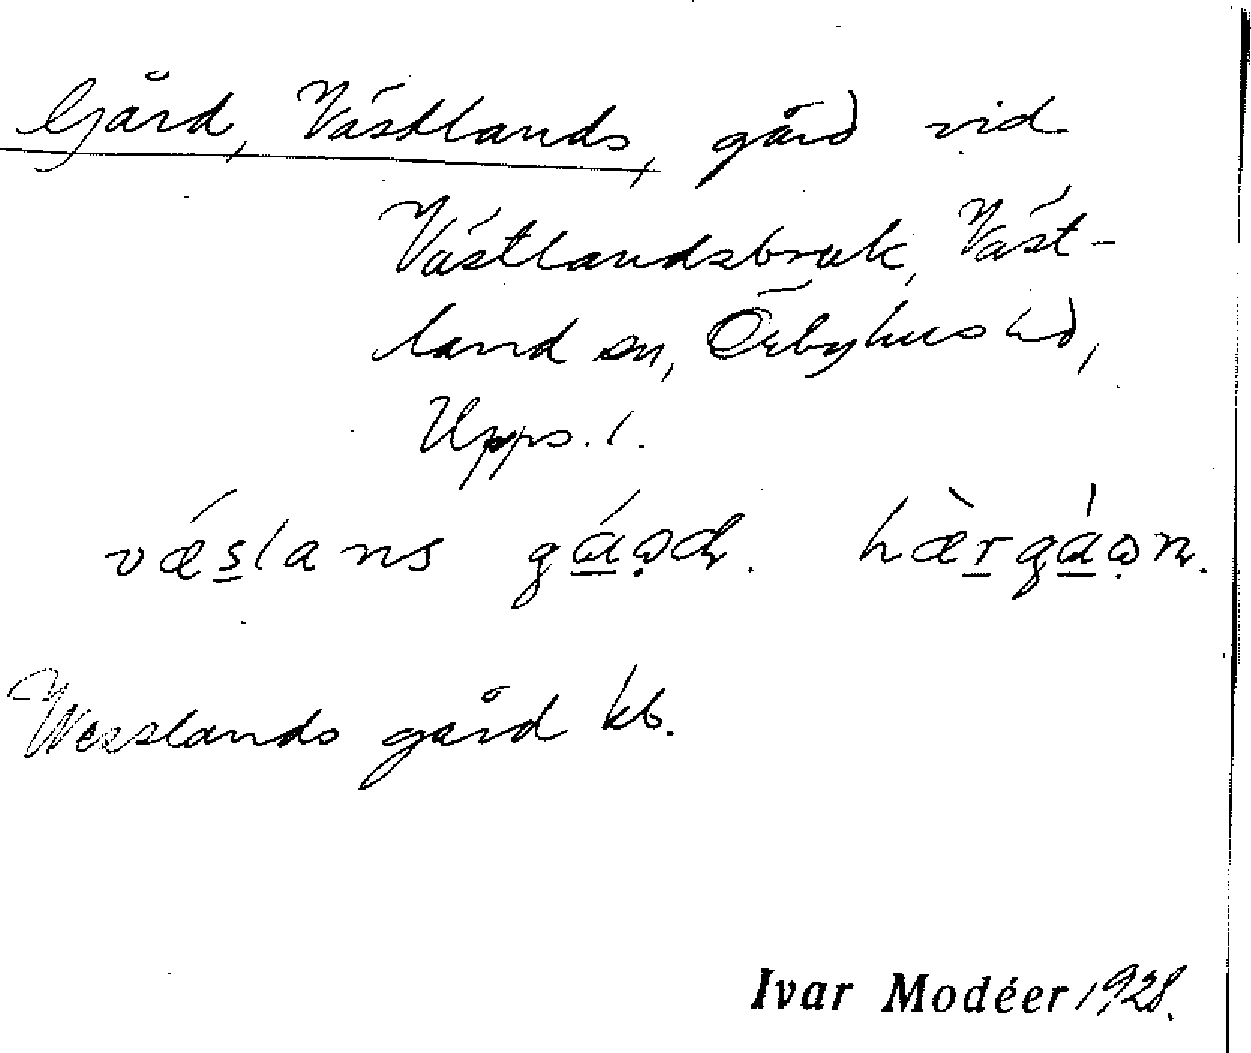 Gård, Västlands, gård vid
Västlandsbruk, Väst-
land sn, Örbyhus hd,
Upps. l.
vǽslans gɑ́ọɖ. hæ̀rgɑ́ọɳ.
Wesslands gård kb.
Ivar Modéer 1928.